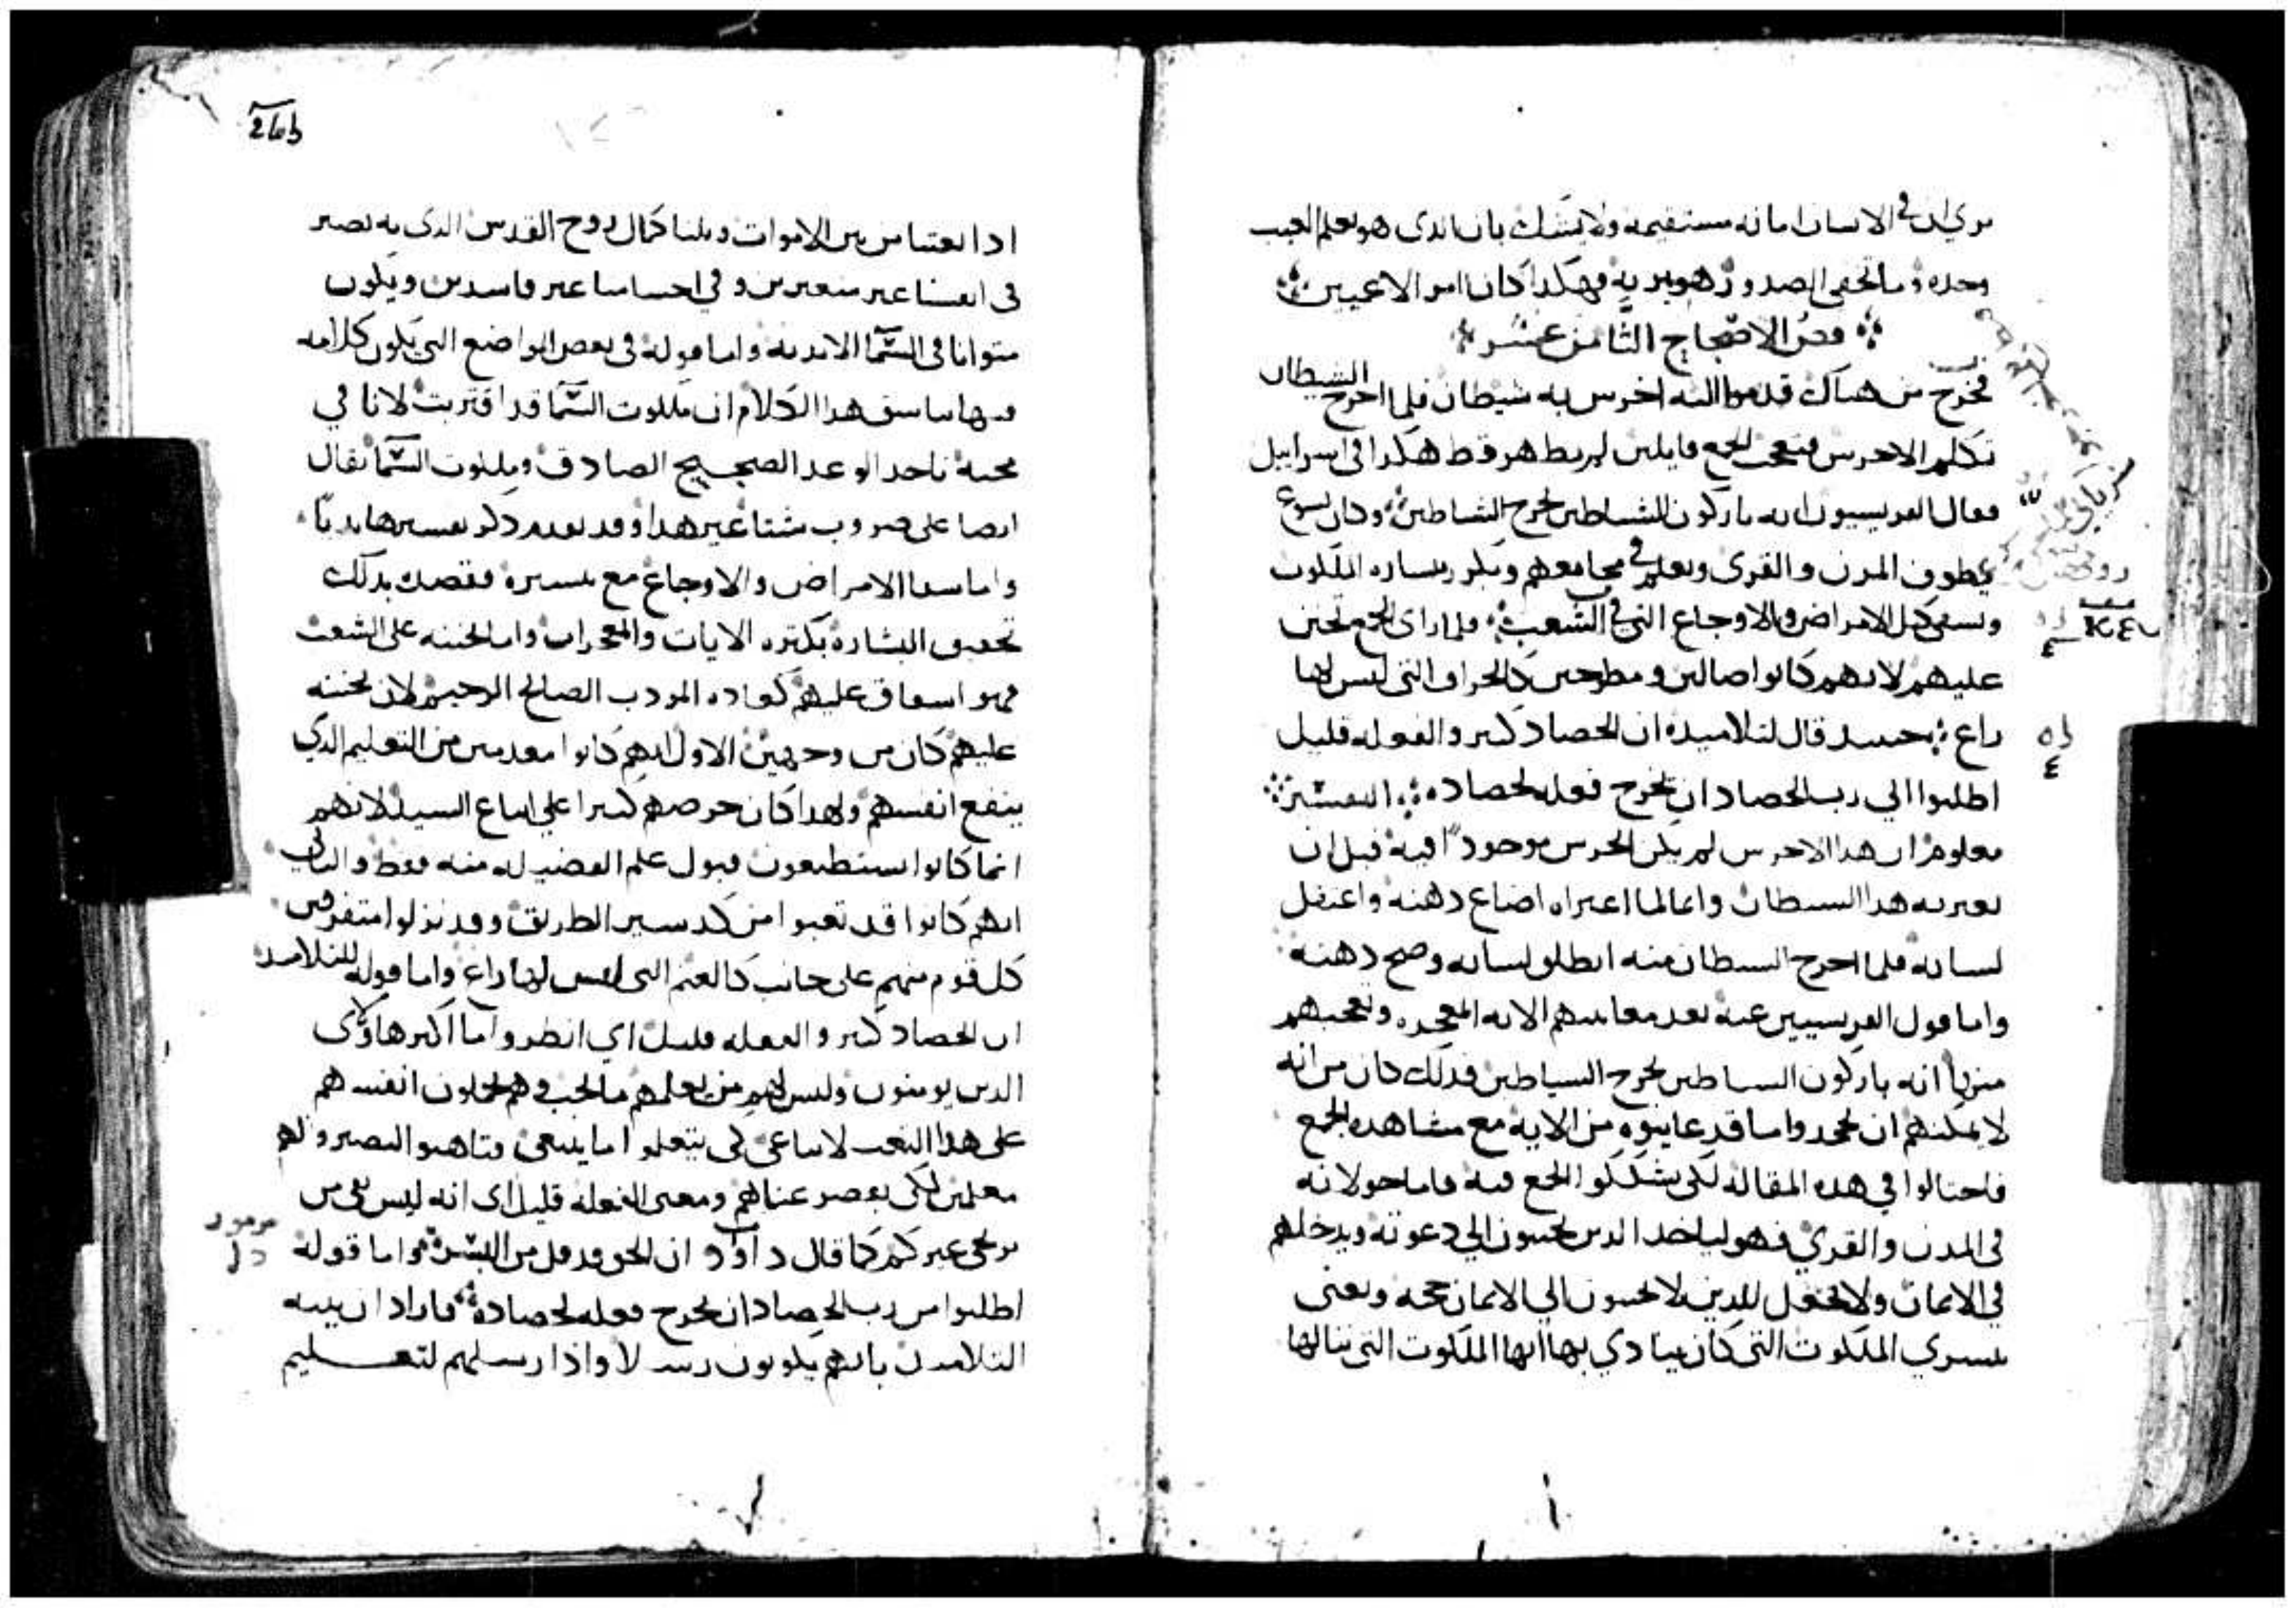 في الانسان امانه مستقيمه ولا يشك بان الذى هو يعلم الغيب
وحده وما تخفى الصدور هو يبريه فهكدا كان امر الاعميين
فص الاصحاح الثامن عشر
فخرج من هناك قدموا اليه اخرس به شيطان فلما اخرج الشيطان
تكلم الاخرس فتعجب الجمع قايلين لم يظهر قط هكدا فى اسراييل
فقال الفريسيون انه باركون الشياطين يخرج الشياطين وكان يسوع
يطوف المدن والقرى ويعلم في مجامعهم ويكرز ببشاره الملكوت
ويشفى كل الامراض والاوجاع التي في الشعب فلما راى الجمع تحنن
عليهم لانهم كانوا ضالين ومطرحين كالخراف التى ليس لها
راع حينيد قال لتلاميده ان الحصاد كتير والفعله قليل
اطلبوا الي رب الحصاد ان يخرج فعله لحصاده التفسير
معلوم ان هدا الاخرس لم يكن الخرس موجودا فيه قبل ان
يعتريه هدا الشيطان وانما لما اعتراه اضاع دهنه واعتقل
لسانه فلما اخرج الشيطان منه انطلق لسانه وصح دهنه
واما قول الفريسيين عنه بعد معاينتهم الايه المعجزه وتعجبهم
منها انه باركون الشياطين يخرج الشياطين فدلك كان من انه
لا يمكنهم ان يجحدوا ما قد عاينوه من الايه مع مشاهده الجمع
فاحتالوا في هده المقاله لكي يشككوا الجمع فيه فاما جولانه
فى المدن والقري فهو لياخد الدين يجيبون الي دعوته ويدخلهم
في الايمان ولا يجعل للدين لا يجيبون الي الايمان حجه ويعنى
ببشري الملكوت التى كان ينادي بها انها الملكوت التى ننالها
ادا انبعتنا من بين الاموات ونلنا كمال روح القدس الدى به نصير
فى انفسنا غير متغيرين وفي اجسامنا غير فاسدين ويكون
متوانا فى السما الابديه واما قوله فى بعض المواضع التى يكون كلامه
فيها مناسق هدا الكلام ان ملكوت السما قد اقتربت لانا في
محبه ناخد الوعد الصحيح الصادق وملكوت السما تقال
ايضا على ضروب شتا غير هدا وقد تقدم دكر تفسيرها
واما شفا الامراض والاوجاع مع تبشيره فقصد بدلك
تحقيق البشاره بكتره الايات والمعجزات واما تحننه على الشعب
فهو اشفاق عليهم كعاده المودب الصالح الرحيم لان تحننه
عليهم كان من وجهين الاول انهم كانوا معدمين من التعليم الدي
ينفع انفسهم ولهدا كان حرصهم كتيرا علي اتباع السيد لانهم
انما كانوا يستطيعون قبول علم الفضيله منه فقط والتاني
انهم كانوا قد تعبوا من كد سير الطريق وقد نزلوا متفرقين
كل قوم منهم على جانب كالغنم التى ليس لها راع واما قوله للتلاميد
ان الحصاد كتير والفعله قليل اي انظروا ما اكبر هاولاى
الدين يومنون وليس لهم من يعلمهم ما يجب وهم يحملون انفسهم
على هدا التعب لاتباعى لكى يتعلموا ما ينبغى
معلمين لكى ومعنى الفعله قليل اى انه ليس بقى من
يرتجى غيركم كما قال داوود ان الحق قد قل من البشر واما قوله
اطلبوا من رب الحصاد ان يخرج فعله لحصاده فاراد ان ينبه
التلاميد بانهم يكونون رسلا وادا ارسلهم لتعليم
مزمور